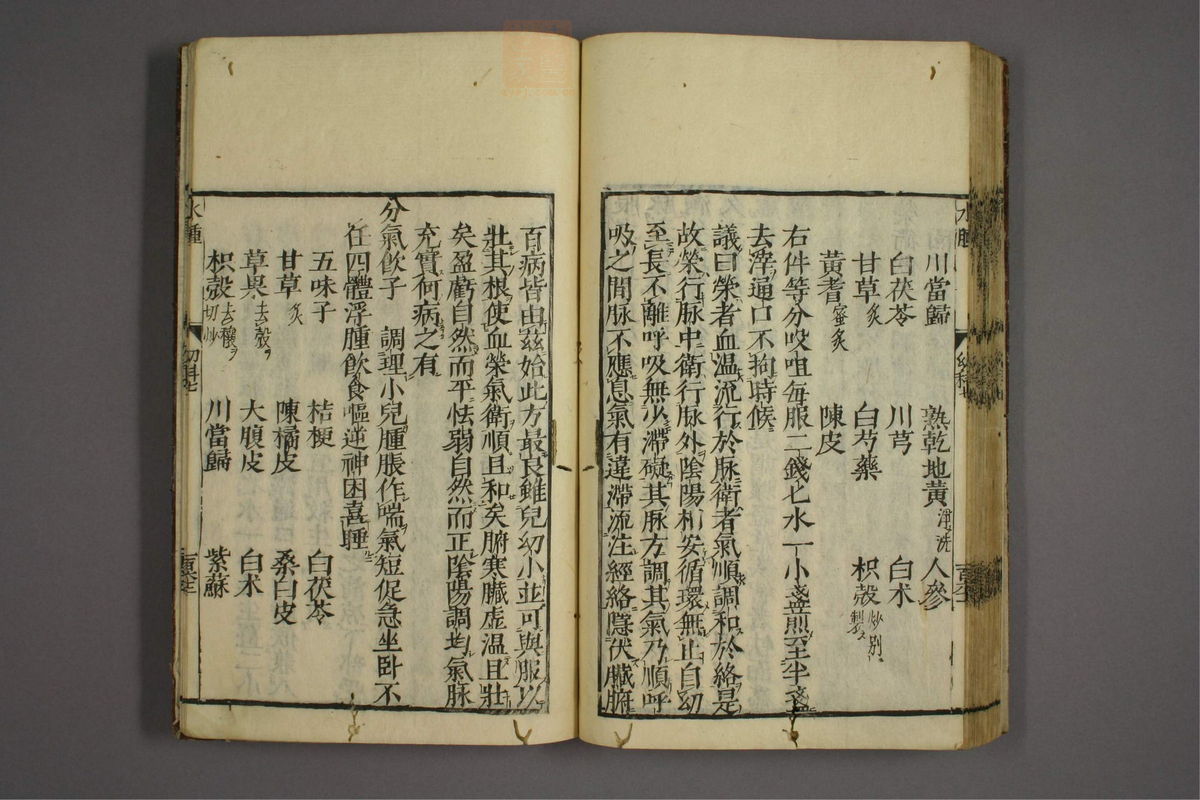 川當歸 熟乾地黃淨洗 人參
白茯苓 川芎 白术
甘草炙 白芍藥 枳殼炒別製ス
黃耆蜜炙 陳皮
右件等分㕮咀每服二錢匕水一小盞煎至半盞
去滓通口不拘時候
議曰榮者血溫流行於脉衛者氣順調和於絡是
故榮行脉中衛行脉外陰陽相安循環無止自幼
至長不離呼吸無少滯礙其脉方調其氣乃順呼
吸之間脉不應息氣有違滯流注經絡隱伏臟腑
百病皆由茲始此方最良雖兒幼小並可與服以
壯其根使血榮氣衛順且和矣腑寒臟虛溫且壯
矣盈虧自然而平怯弱自然而正陰陽調均氣脉
充實何病之有
分氣飲子 調理小兒腫脹作喘氣短促急坐卧不
任四體浮腫飲食嘔逆神困喜睡
五味子 桔梗 白茯苓
甘草炙 陳橘皮 桑白皮
草果去殼ヲ 大腹皮 白术
枳殼去穰ヲ切炒 川當歸 紫蘇
水腫